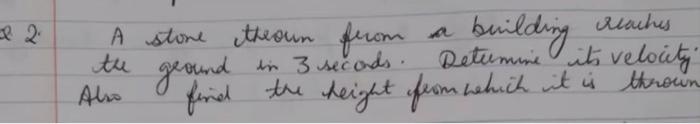 Q 2. A stone thrown from a building reaches
the ground in 3 seconds. Determine its velocity.
Also find the height from which it is thrown